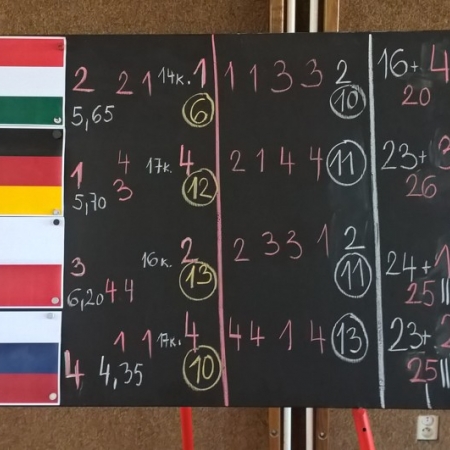 2 2 1 14к. 1 1 1 3 3 2 16+ 4
5,65 6 10 20
1 4 17к. 4 2 1 4 4 11 23+ 3
5,70 3 12 26
3 16к. 2 2 3 3 1 2 24+ 1
6,20 4 4 13 11 25 ||
4 1 1 17к. 4 4 4 1 4 13 23+ 2
4,35 10 25 ||